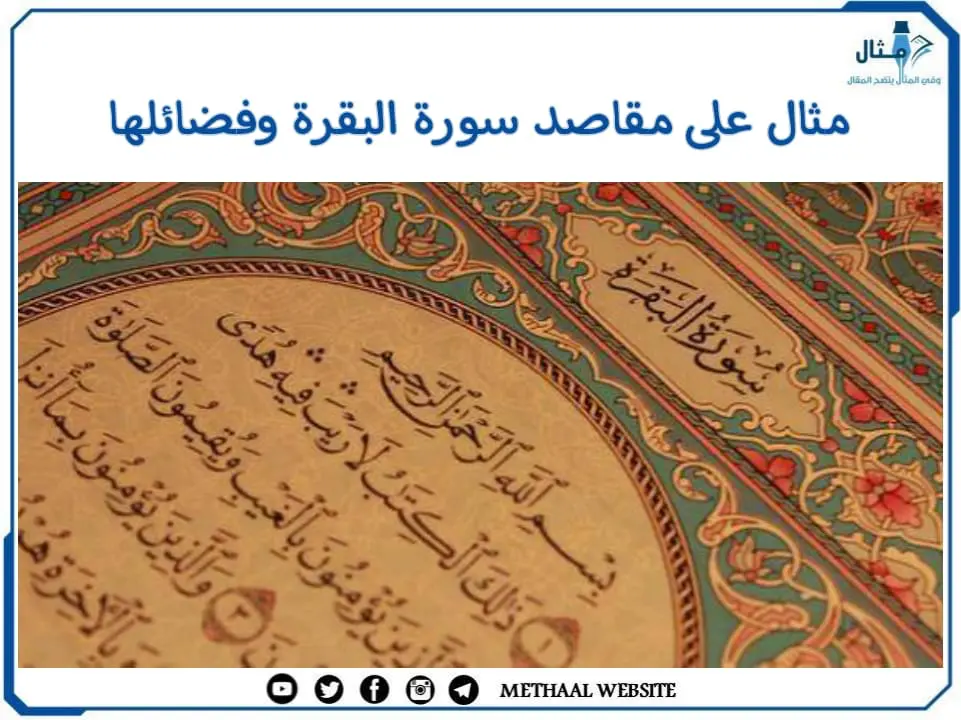 مثال
وفي المثال يتضح المقال
مثال على مقاصد سورة البقرة وفضائلها
سُورَةُ البَقَرَةِ
بِسْمِ ٱللَّهِ ٱلرَّحْمَٰنِ ٱلرَّحِيمِ
١ ذَٰلِكَ ٱلْكِتَٰبُ لَا رَيْبَ ۛ فِيهِ ۛ هُدًى
يُؤْمِنُونَ بِٱلْغَيْبِ وَيُقِيمُونَ ٱلصَّلَوٰةَ
٣ وَٱلَّذِينَ يُؤْمِنُونَ بِمَآ أُنزِ
بِٱلْءَاخِرَةِ
METHAAL WEBSITE